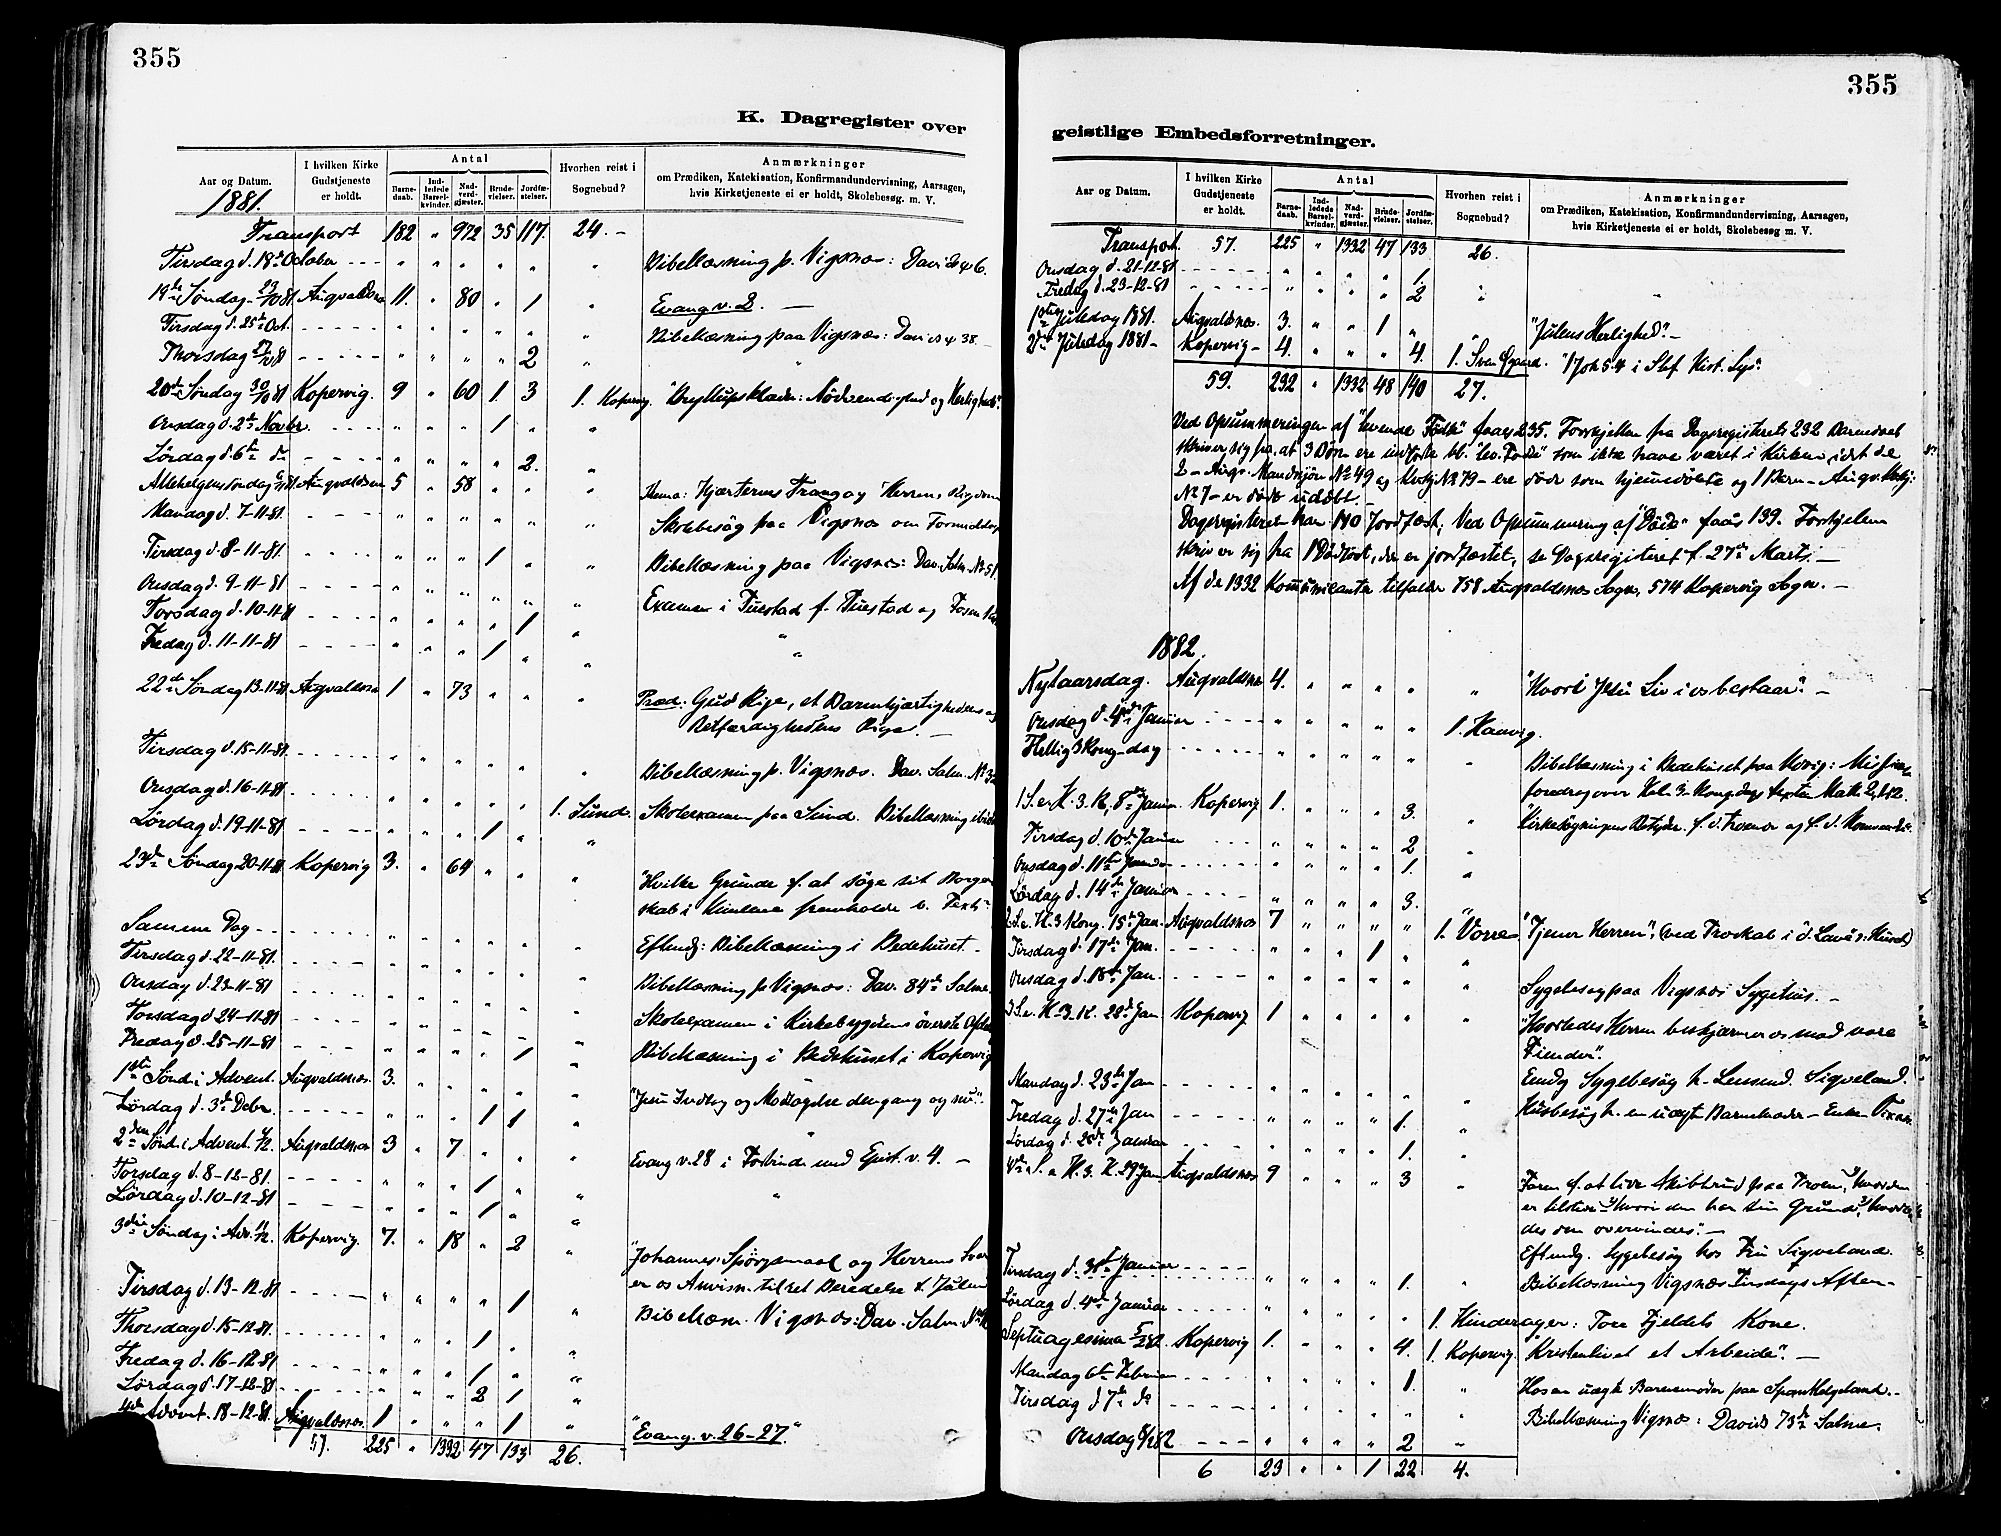 355
K. Dagregister over
Aar og Datum.
I hvilken Kirke Gudstjeneste er holdt.
Antal
Barnedaab.
Indledede Barselkvinder.
Nadverdgjæster.
Brudevielser.
Jordfæstelser.
Hvorhen reist i Sognebud?
Anmærkninger
om Prædiken, Katekisation, Konfirmandundervisning, Aarsagen, hvis Kirketjeneste ei er holdt, Skolebesøg. m. V.
1881.
Transport 182 " 972 35 117. 24. –
Tirsdag d. 18de October - - - " " " " " " Bibellæsning p. Vigsnæs: Davids ψ 6.
19de Søndag 23/10 81 Augvaldsnæs 11. " 80 " 1 " Evang. v. 2. —
Tirsdag d. 25de Oct. - - - - - " " " " " " Bibellæsning paa Vigsnæs: Davids ψ 38. –
Thorsdag 27/10 81 - - - - - " " " " 2
20de Søndag 30/10 81 Kopervig. 9 " 60 1 3 1. Kopervig. "Bryllupsklæder: Nødvendighed og Herlighed".
Onsdag d. 2de Novbr. - - - - " " " 1 " "
Lördag d. 6te ds - - - - - " " " " 2. "
Allehelgenssöndag 6/11 81 Augvaldsnæs 5 " 58 " " " Hjærternes Trang og Herrens Rigdom
Mandag d. 7-11-81. - - - " " " " " " Skolebesög paa Vigsnæs om Formiddag
Tirsdag d. 8-11-81. - - - - " " " 1 " " Bibellæsning paa Vigsnæs: Dav. Salm. No 51.
Onsdag d. 9-11-81 - - - - " " " " " " Examen i
Torsdag d. 10-11-81 - - - - " " " " 1 "
Fredag d. 11-11-81 - - - - " " " 1 " " "
22de Søndag 13-11-81 Augvaldsnæs 1 " 73 " " " Præd: Guds Rige, et Barmhjærtighedens og
Retfærdighedens Rige. —
Tirsdag d. 15-11-81. - - - - " " " " " " Bibellæsning p. Vigsnæs. Dav. Salm. No 32
Onsdag d. 16-11-81 - - - - " " " " " 1. Sund. Skoleexamen paa Sund. Bibellæsning
Lördag d. 19-11-81 - - - - " " " 1 " "
23de Søndag 20-11-81 Kopervig 3. " 64 " " " "Hvilke Grunde f. at söge sit Borger
skab i Himlene fremholder v. Text"
Samme Dag - - - - - " " " " " " Eftmdg: Bibellæsning i Bedehuset –
Tirsdag d. 22-11-81. - - - - " " " " " " Bibellæsning p Vigsnæs: Dav. 84de Salme.
Onsdag d. 23-11-81 - - - - " " " " "
Torsdag d 24-11-81 - - - - " " " " " " Skoleexamen i Kirkebygdens överste Afdel
Fredag d. 25-11-81 - - - - " " " " 1 " Bibellæsning i Bedehuset i Kopervig
1ste Sönd. i Advent. Augvaldsnæs. 3. " " " " " "Jesu Indtog og Modtagelse dengang og nu." –
Lördag d. 3de Decbr. - - - - " " " 1 1 "
2den Sönd. i Advent. 4/12 Augvaldsnæs 3 " 7 " " " Evang v. 28 i Forbinds med Epist. v. 4. —
Torsdag d. 8-12-81. - - - - " " " 1 "
Lördag d. 10-12-81 - - - - " " " 1 " " "
3die Søndag i Adv. 11/12 Kopervig. 7. " 18 " 2 " "Johannes Spörgsmaal og Herrens Svar
er os Anvisn. til ret Beredelse t. Julen
Tirsdag d. 13-12-81 - - - - " " " " 1 " Bibellæsn. Vigsnæs: Dav. Salm.
Thorsdag d. 15-12-81. - - - - " " " 1 " "
Fredag d. 16-12-81 - - - - " " " 1 " "
Lördag d. 17-12-81 - - - - " " " 2 1 "
4de Advent. 18-12-81. Augvaldsnæs. 1 " " " 1 " "Evang. v. 26-27."
57. 225 " 1332 47 133 26.
355
geistlige Embedsforretninger.
Aar og Datum.
I hvilken Kirke Gudstjeneste er holdt.
Antal
Barnedaab.
Indledede Barselkvinder.
Nadverdgjæster.
Brudevielser.
Jordfæstelser.
Hvorhen reist i Sognebud?
Anmærkninger
om Prædiken, Katekisation, Konfirmandundervisning, Aarsagen, hvis Kirketjeneste ei er holdt, Skolebesøg m. V.
Transport. 57. 225 " 1332 47 133 26.
Onsdag d. 21-12-81 - - - - - " " " " 1.
Fredag d. 23-12-81 - - - - " " " " 2 " "
1ste Juledag 1881. Augvaldsnæs. 3. " " 1 " " "Julens Herlighed". –
2den Juledag 1881 – Kopervig – 4. " " " 4. 1. Sven "1 Joh 5.4 i Stef. Hist. Lys".
59. 232 " 1332 48 140 27.
Ved Opsummeringen af "levende Fødte" faaes 235. Forskjellen fra Dagsregistrets 232 Barnedaab
skriver sig fra, at 3 Börn ere indførte bl. "lev. Fødte" som ikke have været i Kirken, idet de
2 – Augv. Mandkjön No 49 og Kvkj. No 79 – ere døde som hjemmedøbte og 1 Barn – Augv. Kvkj:
No 7 – er død udöbt –
Dagsregisteret har 140 Jordfæst; Ved Opsummering af "Døde" faaes 139. Forskjellen
skriver sig fra 1 Dødfødt, der er jordfæstet, se Dagsregisteret f. 27de Marts. —
Af de 1332 Kommunicanter tilfalder 758 Augvaldsnæs Sogn, 574 Kopervig Sogn. —
1882.
Nytaarsdag. Augvaldsnæs 4. " " " " " "Hvori Jesu Liv i os bestaar". –
Onsdag d. 4de Januar - - - - " " " " " 1. Haavig.
Hellig 3 Kong-dag - - - - - " " " " " " Bibellæsning i Bedehuset paa Kovig: Missions
foredrag over Hel. 3 Kong.dags texten Math 2, 1-12.
1 S. e. H. 3. K, 8de Januar Kopervig 1. " " " 3. " "Kirkesøgningens Betyde. f. d. troende og f. d.
Tirsdag d. 10de Januar - - - " " " " 2 "
Onsdag d. 11te Januar - - - " " " " 1. "
Lördag d. 14de Januar - - - - " " " " 3. "
2 S. e. H. 3 Kong. 15de Jan. Augvaldsnæs 7 " " " " 1. Vorre "Tjener Herren". (ved Troskab i d.
Tirsdag d. 17de Jan. - - - - " " " 1 " "
Onsdag d. 18de Jan. - - - - " " " " " " Sygebesøg paa Vigsnæs Sygehus. –
3 S. e. H. 3. K. 22de Jan Kopervig 1 " " " " " "Hvorledes Herren beskjærmer os mod vore
Fiender".
Mandag d. 23de Jan - - - - " " " " " " Sygebesøg h. Lensmd. Sigveland.
Fredag d. 27de Jan - - - - " " " " 1. " Husbesøg h. en uægt. Barnemoder –
Lördag d. 28de Januar - - " " " " 1.
4de S. e. H. 3. K. 29 Jan Augvaldsnæs 9 " " " 3 " "Faren f. at lide Skibbrud paa Troen, hvori den
er tilstede – hvori den har sin Grund, hvorle
des den overvindes". —
Eftmdg. Sygebesøg hos Fru Sigveland.
Tirsdag d. 31te Januar - - - - " " " " 1. " Bibellæsning Vigsnæs Tirsdags Aften –
Lördag d. 4de Januar - - - - " " " " " 1. Hinderager: Tore Fjeldets Kone.
Septuagesima 5/2 82 Kopervig 1. " " " 4. 1. Kopervig. "Kristenlivet et Arbeide". —
Mandag 6te Februar - - - 1. " Hos en uægt. Barnemoder paa
Tirsdag d 7de ds - - - " " " " " " Bibellæsning Vigsnæs: Davids 73de Salme.
Onsdag 8/2 82 - - - - " " " " 2 "
6 23 " " 1 22 4.